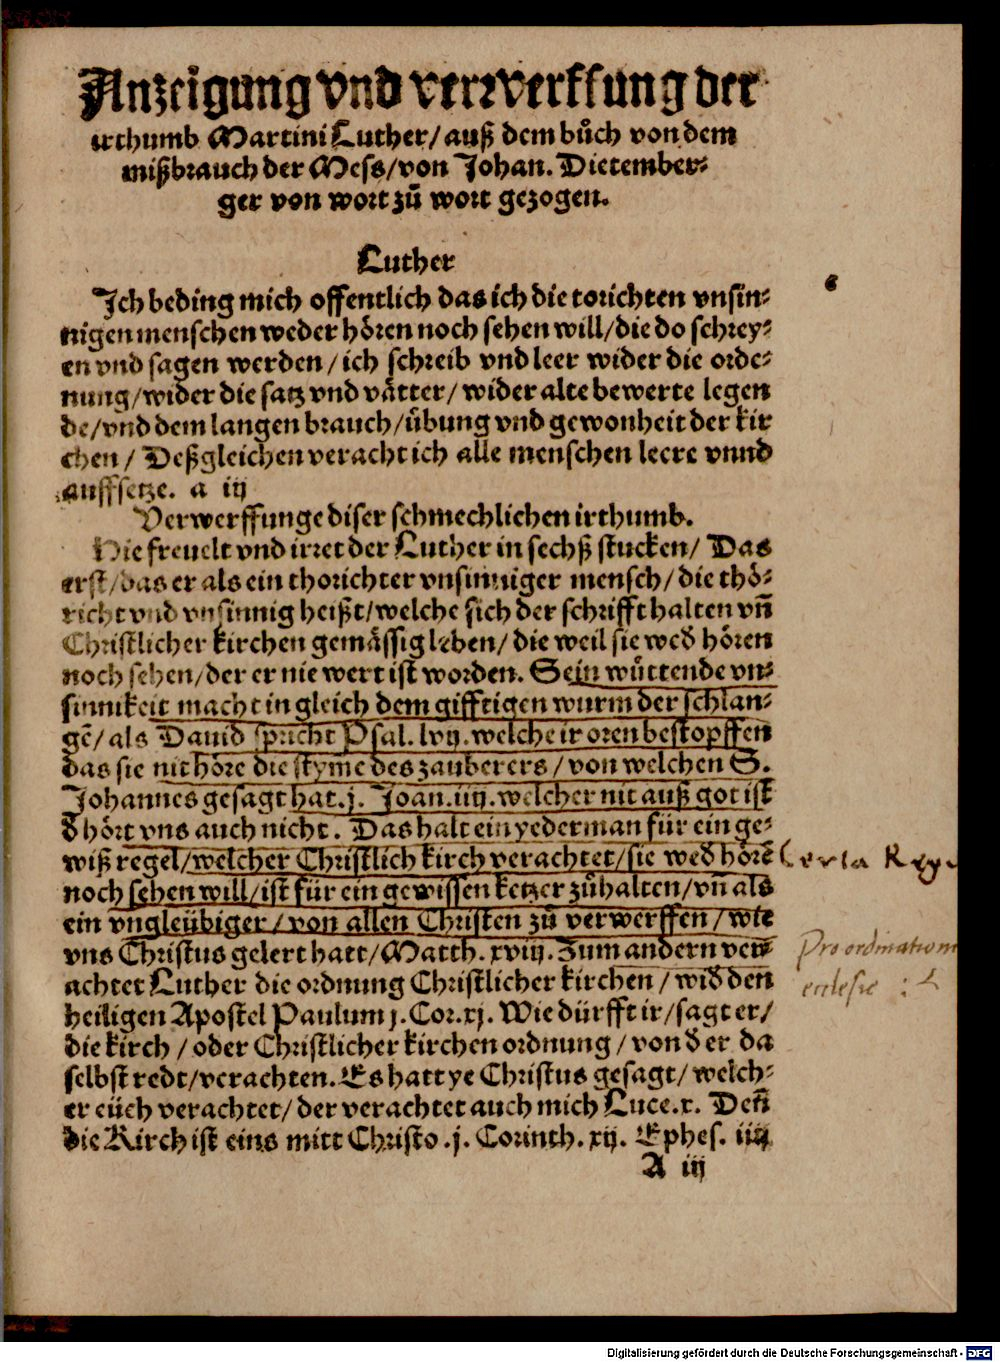 Anzeigung vnd verwerffung der
irthumb Martini Luther/ auß dem bůch von dem
mißbrauch der Mess/ von Johan. Dietember⸗
ger von wort zů wort gezogen.
Luther
Ich beding mich offentlich das ich die torichten vnsin⸗
nigen menschen weder hören noch sehen will/ die do schrey⸗
en vnd sagen werden/ ich schreib vnd leer wider die orde⸗
nung/ wider die satz vnd vätter/ wider alte bewerte legen
de/ vnd dem langen brauch/ übung vnd gewonheit der kir
chen/ Deßgleichen veracht ich alle menschen leere vnnd
auffsetze. a iij
Verwerffunge diser schmechlichen irthumb.
Hie freuelt vnd irret der Luther in sechß stucken/ Das
erst/ das er als ein thorichter vnsinniger mensch/ die thö⸗
richt vnd vnsinnig heißt/ welche sich der schrifft halten vñ
Christlicher kirchen gemässig leben/ die weil sie wed hören
noch sehen/ der er nie wert ist worden. Sein wüttende vn⸗
sinnikeit macht in gleich dem gifftigen wurm der schlan⸗
gē/ als Dauid spricht Psal. lvij. welche ir oren bestopffen
das sie nit höre die styme des zauberers/ von welchen S.
Johannes gesagt hat. j. Joan. iiij. welcher nit auß got ist
d hört vns auch nicht. Das halt ein yederman für ein ge⸗
wiß regel/ welcher Christlich kirch verachtet/ sie wed hörē
noch sehen will/ ist für ein gewissen ketzer zůhalten/ vñ als
ein vngleübiger/ von allen Christen zů verwerffen/ wie
vns Christus gelert hatt/ Matth. xviij. Zum andern ver⸗
achtet Luther die ordnung Christlicher kirchen/ wid den
heiligen Apostel Paulum j. Cor. xj. Wie dürfft ir/ sagt er/
die kirch/ oder Christlicher kirchen ordnung/ von d er da
selbst redt/ verachten. Es hatt ye Christus gesagt/ welch⸗
er eüch verachtet/ der verachtet auch mich Luce. x. Deñ
die Kirch ist eins mitt Christo. j. Corinth. xij. Ephes. iiij
A iij
Certa
Pro ordinatione
ecclesie
Digitalisierung gefördert durch die Deutsche Forschungsgemeinschaft - DFG